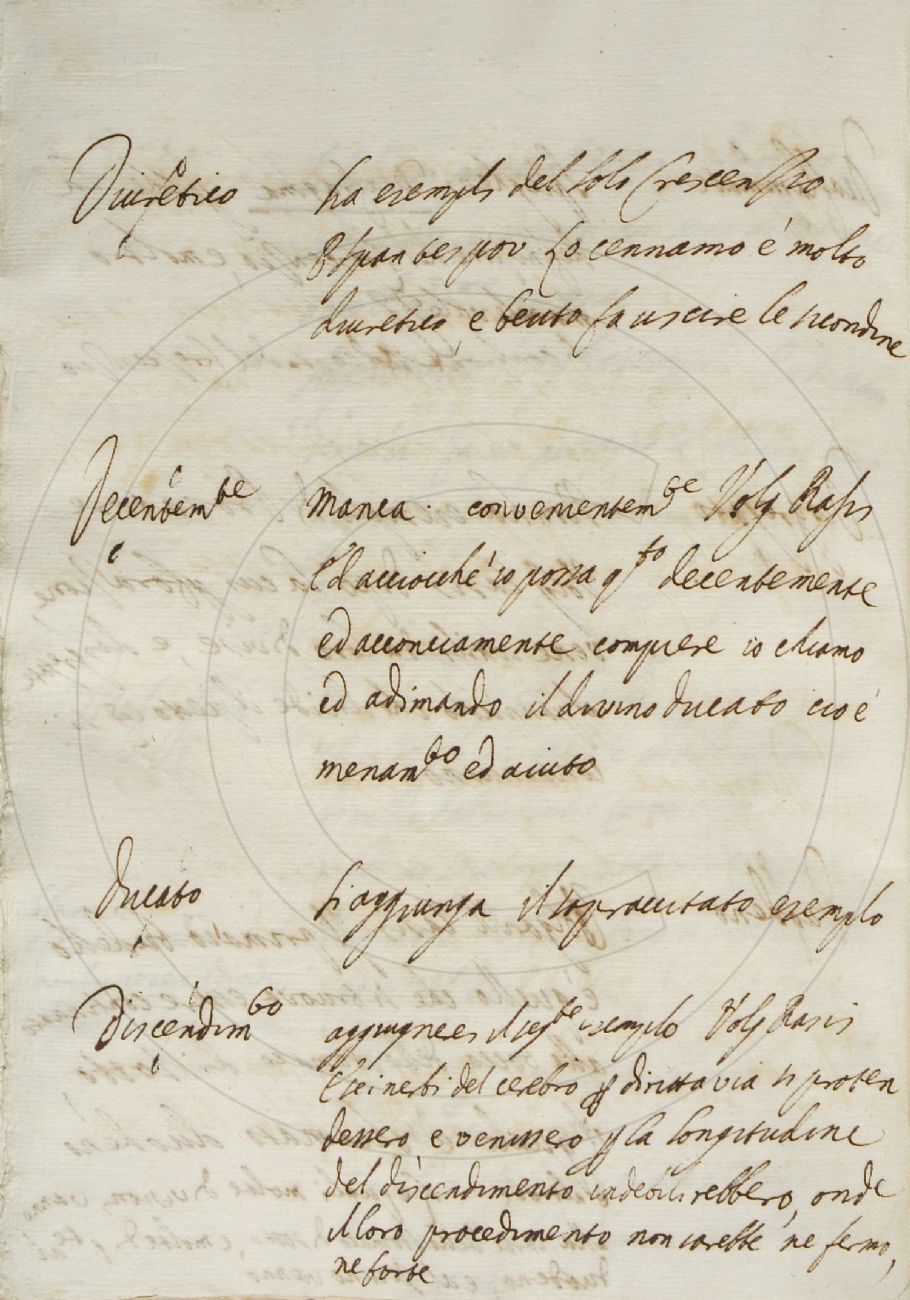 Diuretico ha esempli del solo Crescenzio
Lo cennamo è molto
diuretico, e beuto fa uscire le secondine
Decentem.te Manca. convenientem.te Volg Rasis
Ed acciocchè io possa q.sto decentemente
ed acconciamente compiere io chiamo
ed adimando il divino ducato cioè
menam.to ed aiuto
Ducato si aggiunga il sopraccitato esempio
Discendim.to aggiugnere il seg.te esemplo Volg Rasis
E se i nerbi del cerebro p diritta via si proten
dessero e venissero p la longitudine
del discendimento indebilirebbero, onde
il loro procedimento non sarebbe ne fermo,
ne forte